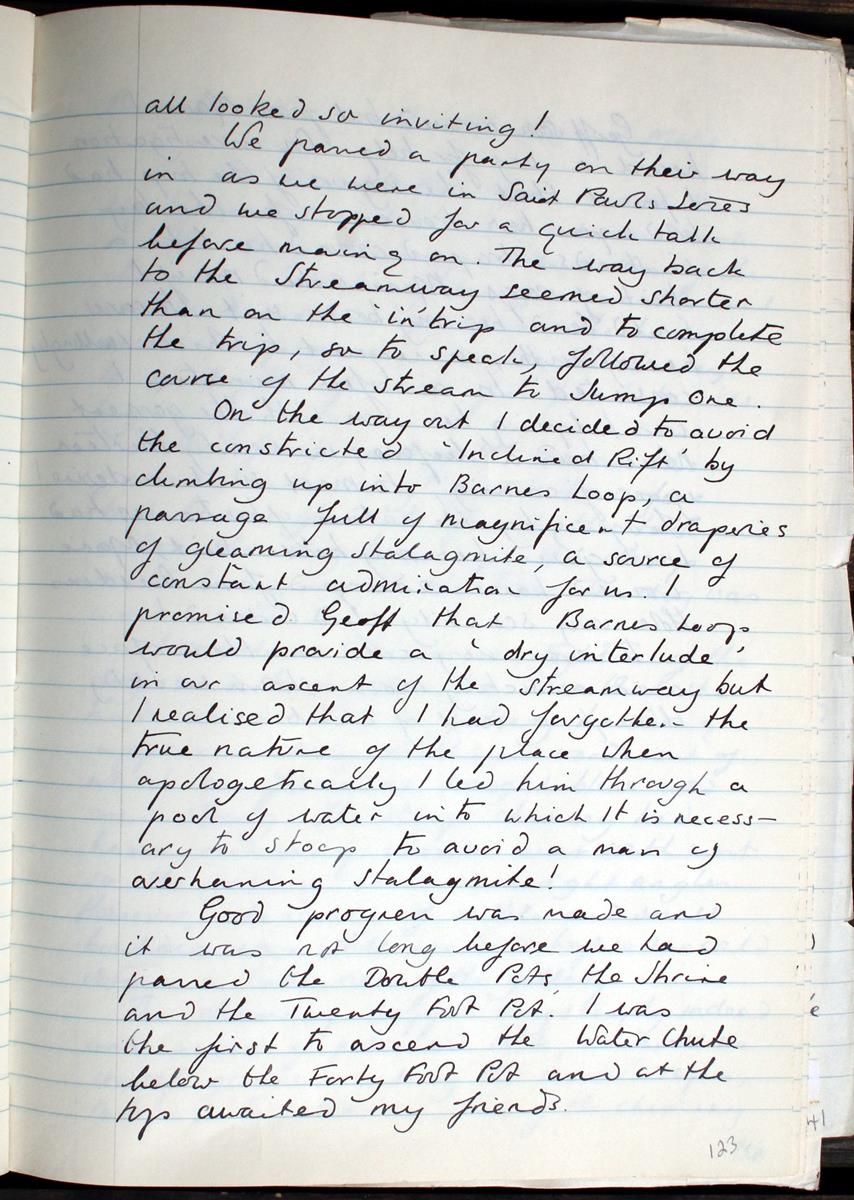 all looked so inviting!
We passed a party on their way
in as we were in Saint Pauls Series
and we stopped for a quick talk
before moving on. The way back
to the Streamway seemed shorter
than on the 'in' trip and to complete
the trip, so to speak, followed the
course of the stream to Sump One.
On the way out I decided to avoid
the constricted 'Inclined Rift' by
climbing up into Barnes Loop, a
passage full of magnificent draperies
of gleaming stalagmite, a source of
constant admiration for us. I
promised Geoff that Barnes Loop
would provide a 'dry interlude'
in our ascent of the streamway but
I realised that I had forgotten the
true nature of the place when
apologetically I led him through a
pool of water into which it is necess-
ary to stoop to avoid a mass of
overhaning stalagmite!
Good progress was made and
it was not long before we had
passed the Double Pots, the Shrine
and the Twenty Foot Pot. I was
the first to ascend the Water Chute
below the Forty Foot Pot and at the
top awaited my friends.
123